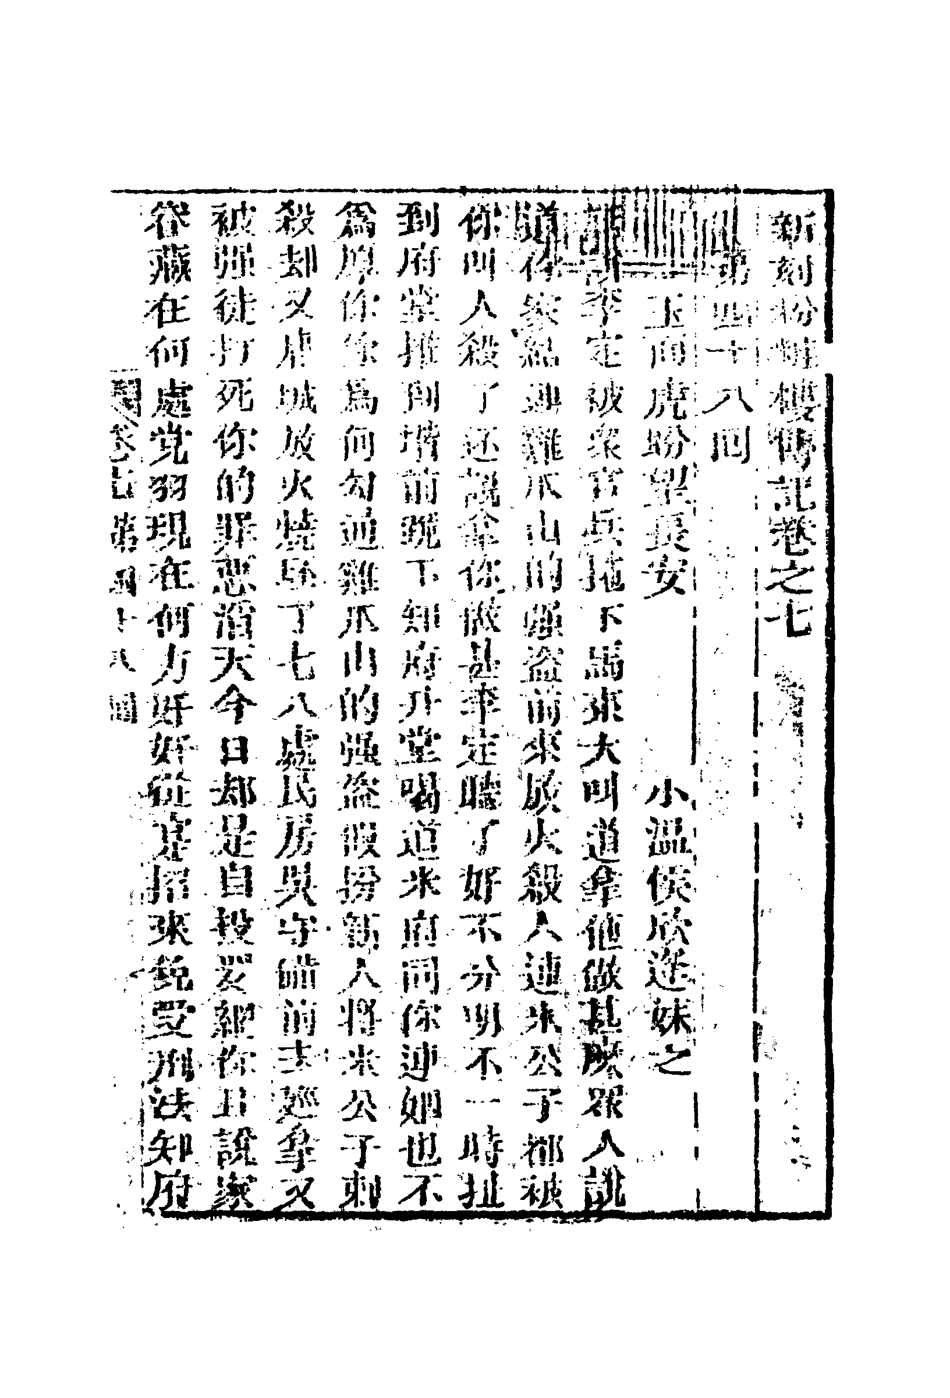 新刻粉粧樓傳記卷之七
第四十八回
玉面虎盼望長安 小溫侯欣逢妹之
李定被衆官兵拖下馬來大叫道拿他做甚麽眾人說
道你家結連雞爪山的强盗前來放火殺人連米公子都被
你叫人殺了还說拿你做甚李定聽了好不分明不一時扯
到府堂推到堦前跪下知府升堂喝道米府同你連姻也不
爲辱你你爲何勾通雞爪山的强盗假扮新人將米公子刺
殺却又庫城放火燒毀了七八處民房吳守備前去廵拿又
被强徒打死你的罪惡滔天今日却是自投羅網你且說家
眷藏在何處党羽現在何方好好從实招來免受刑法知府
卷七 第四十八回